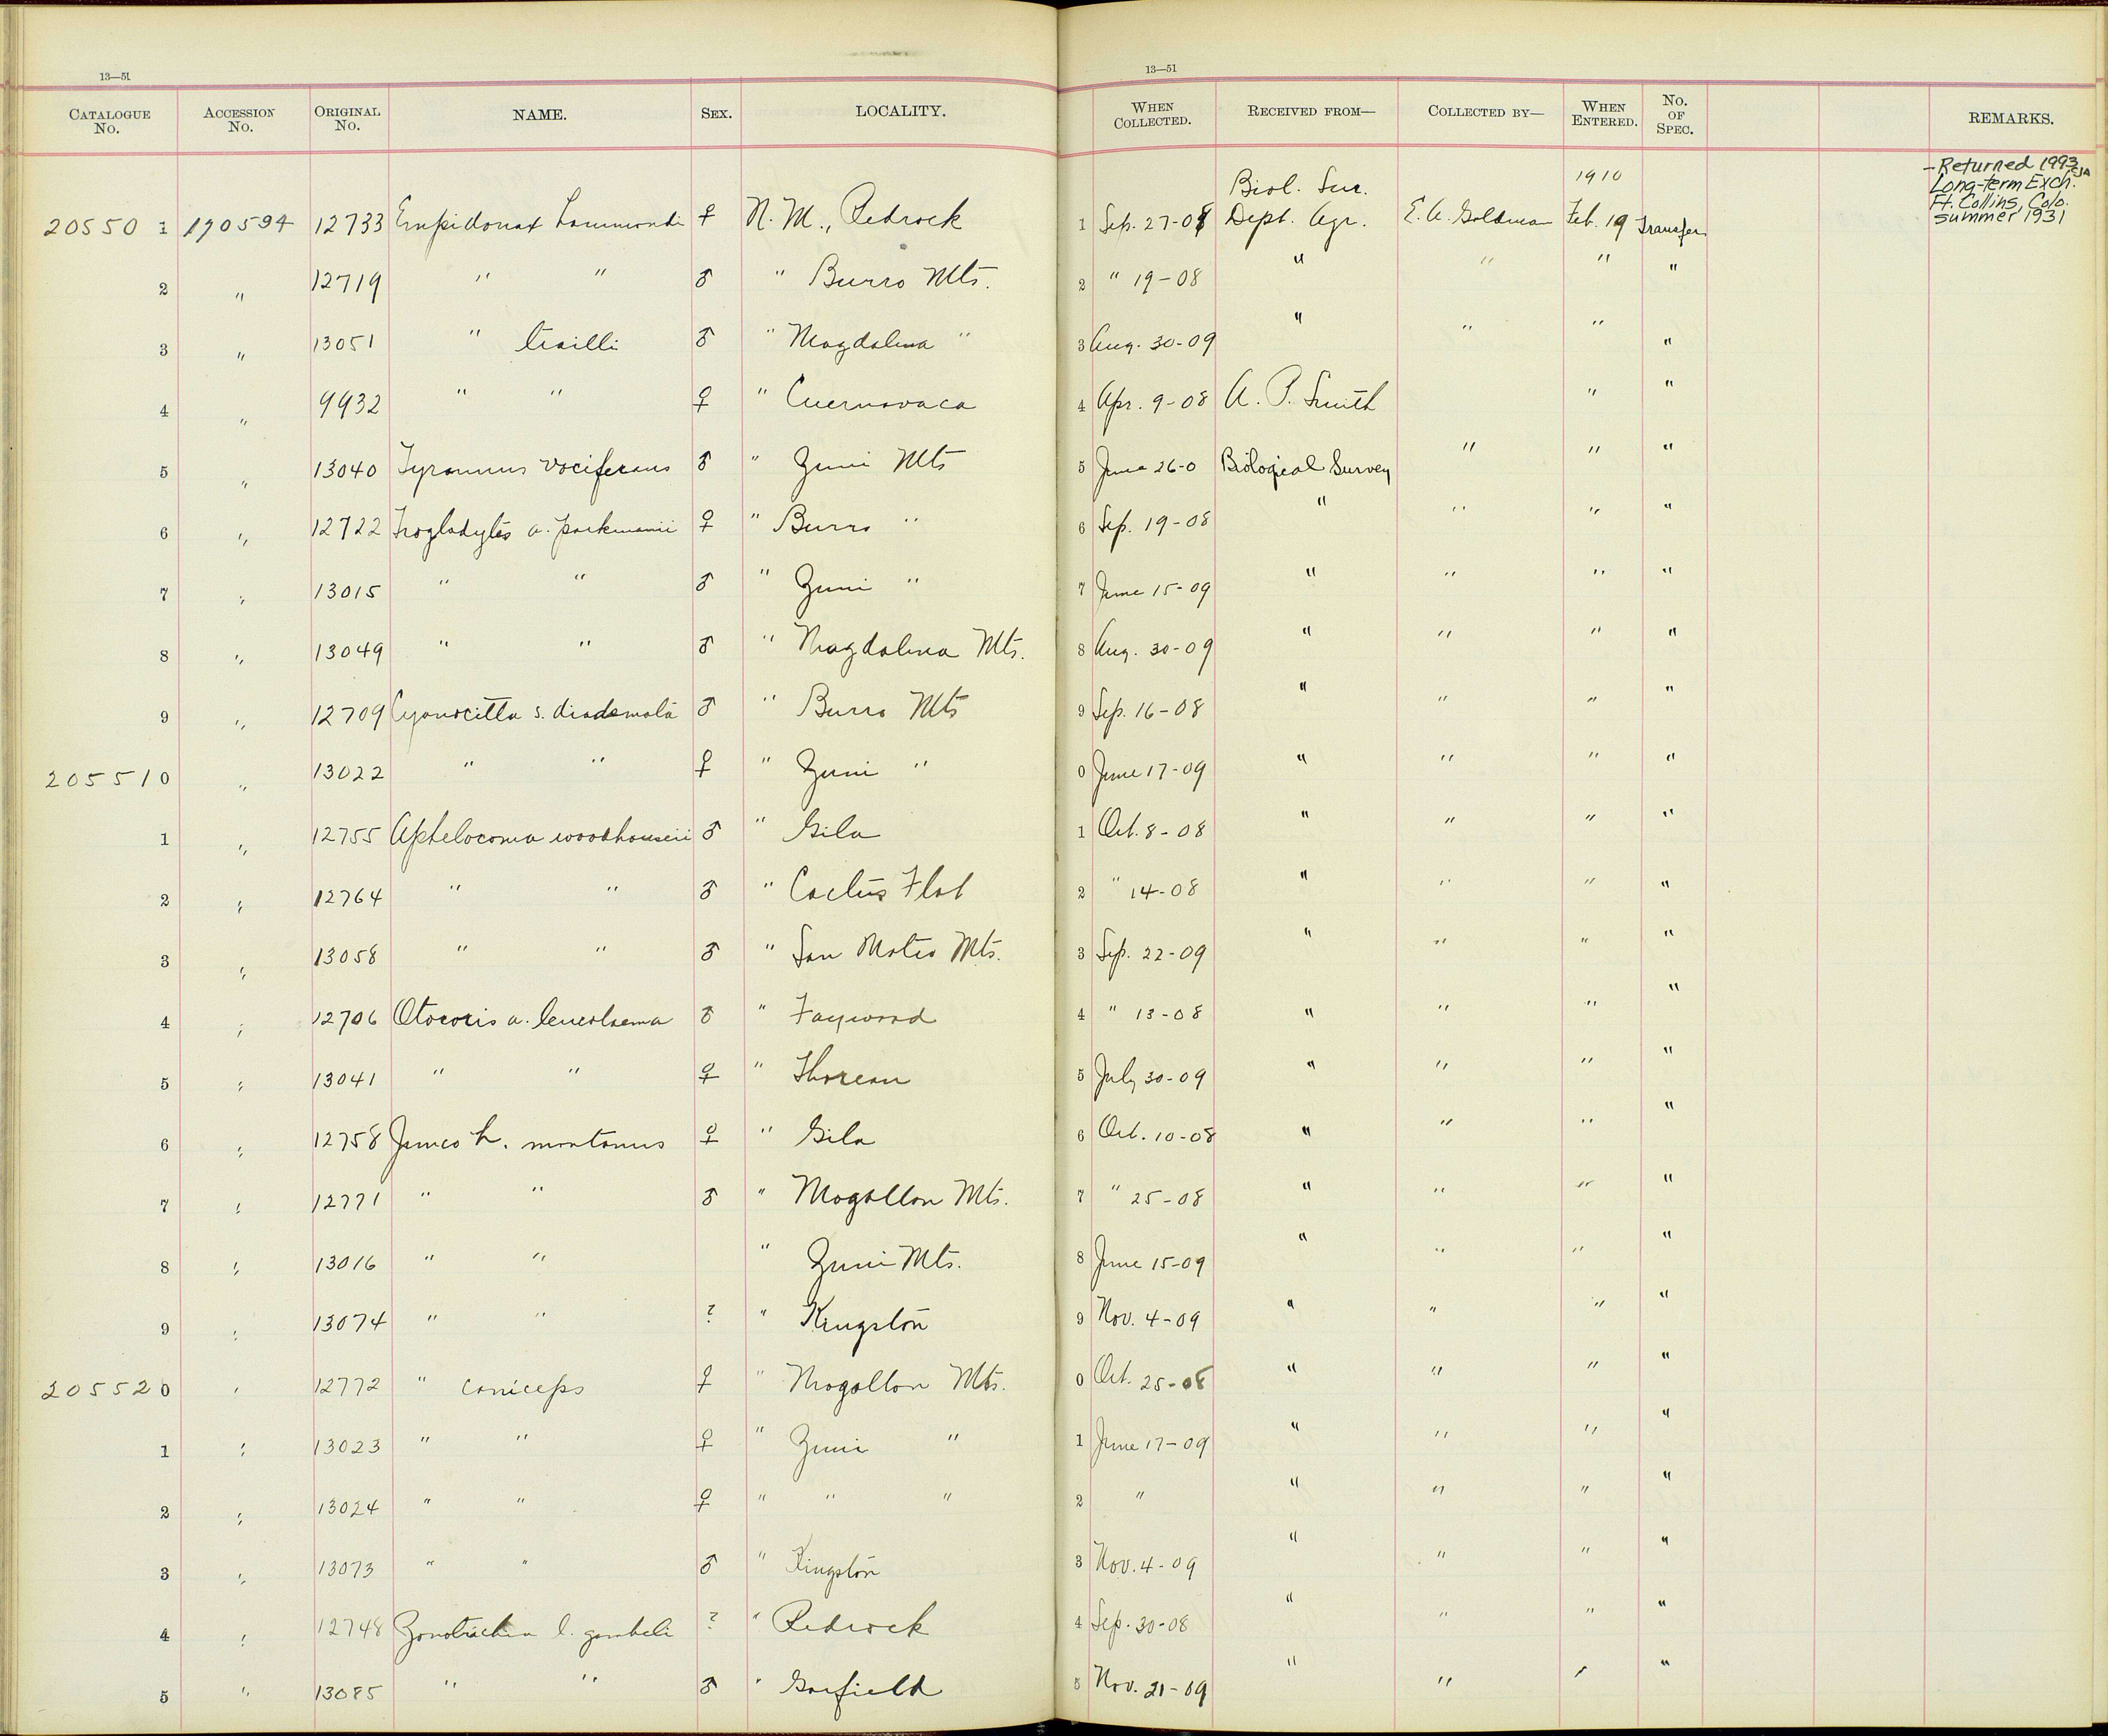 13—51
13—51
CATALOGUE No. ACCESSION No. ORIGINAL No. NAME. SEX. LOCALITY. WHEN COLLECTED. RECEIVED FROM— COLLECTED BY— WHEN ENTERED. No. OF SPEC. REMARKS.
— Returned 1993 SJA
Long-term Exch.
Ft. Collins, Colo.
summer 1931
Biol. Sur. 1910
20550 1 190594 12733 Empidonax hammondi ♀ N. M., Redrock 1 Sep. 27-08 Dept. Agr. E. A. Goldman Feb. 19 Transfer
2 " 12719 " " ♂ " Burro Mts. 2 " 19-08 " " " "
3 " 13051 " trailli ♂ " Magdalena " 3 Aug. 30-09 " " " "
4 " 9932 " " ♀ " Cuernavaca 4 Apr. 9-08 A. P. Smith " "
5 " 13040 Tyrannus vociferans ♂ " Zuni Mts 5 June 26-0 Biological Survey " " "
6 " 12722 Troglodytes a. parkmanii ♀ " Burro " 6 Sep. 19-08 " " " "
7 " 13015 " " ♂ " Zuni " 7 June 15-09 " " " "
8 " 13049 " " ♂ " Magdalena Mts. 8 Aug. 30-09 " " " "
9 " 12709 Cyanocitta s. diademata ♂ " Burro Mts 9 Sep. 16-08 " " " "
205510 " 13022 " " ♀ " Zuni " 0 June 17-09 " " " "
1 " 12755 Aphelocoma woodhouseii ♂ " Gila 1 Oct. 8-08 " " " "
2 " 12764 " " ♂ " Cactus Flat 2 " 14-08 " " " "
3 " 13058 " " ♂ " San Mateo Mts. 3 Sep. 22-09 " " " "
4 " 12706 Otocoris a. leucolaema ♂ " Faywood 4 " 13-08 " " " "
5 " 13041 " " ♀ " Thoreau 5 July 30-09 " " " "
6 " 12758 Junco h. montanus ♀ " Gila 6 Oct. 10-08 " " " "
7 " 12771 " " ♂ " Mogollon Mts. 7 " 25-08 " " " "
8 " 13016 " " " Zuni Mts. 8 June 15-09 " " " "
9 " 13074 " " ? " Kingston 9 Nov. 4-09 " " " "
205520 " 12772 " caniceps ♀ " Mogollon Mts. 0 Oct. 25-08 " " " "
1 " 13023 " " ♀ " Zuni " 1 June 17-09 " " " "
2 " 13024 " " ♀ " " " 2 " " " " "
3 " 13073 " " ♂ " Kingston 3 Nov. 4-09 " " " "
4 " 12748 Zonotrichia l. gambeli ? " Redrock 4 Sep. 30-08 " " " "
5 " 13085 " " ♂ " Garfield 5 Nov. 21-09 " " " "